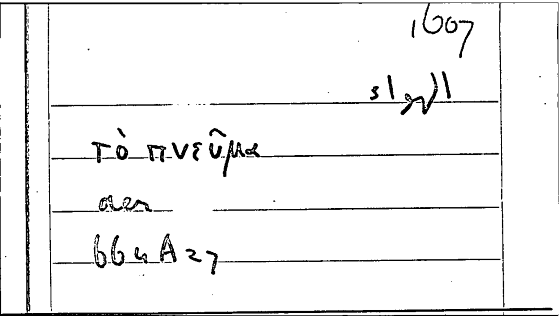 1607
τὸ πνεῦμα
aer
664A27